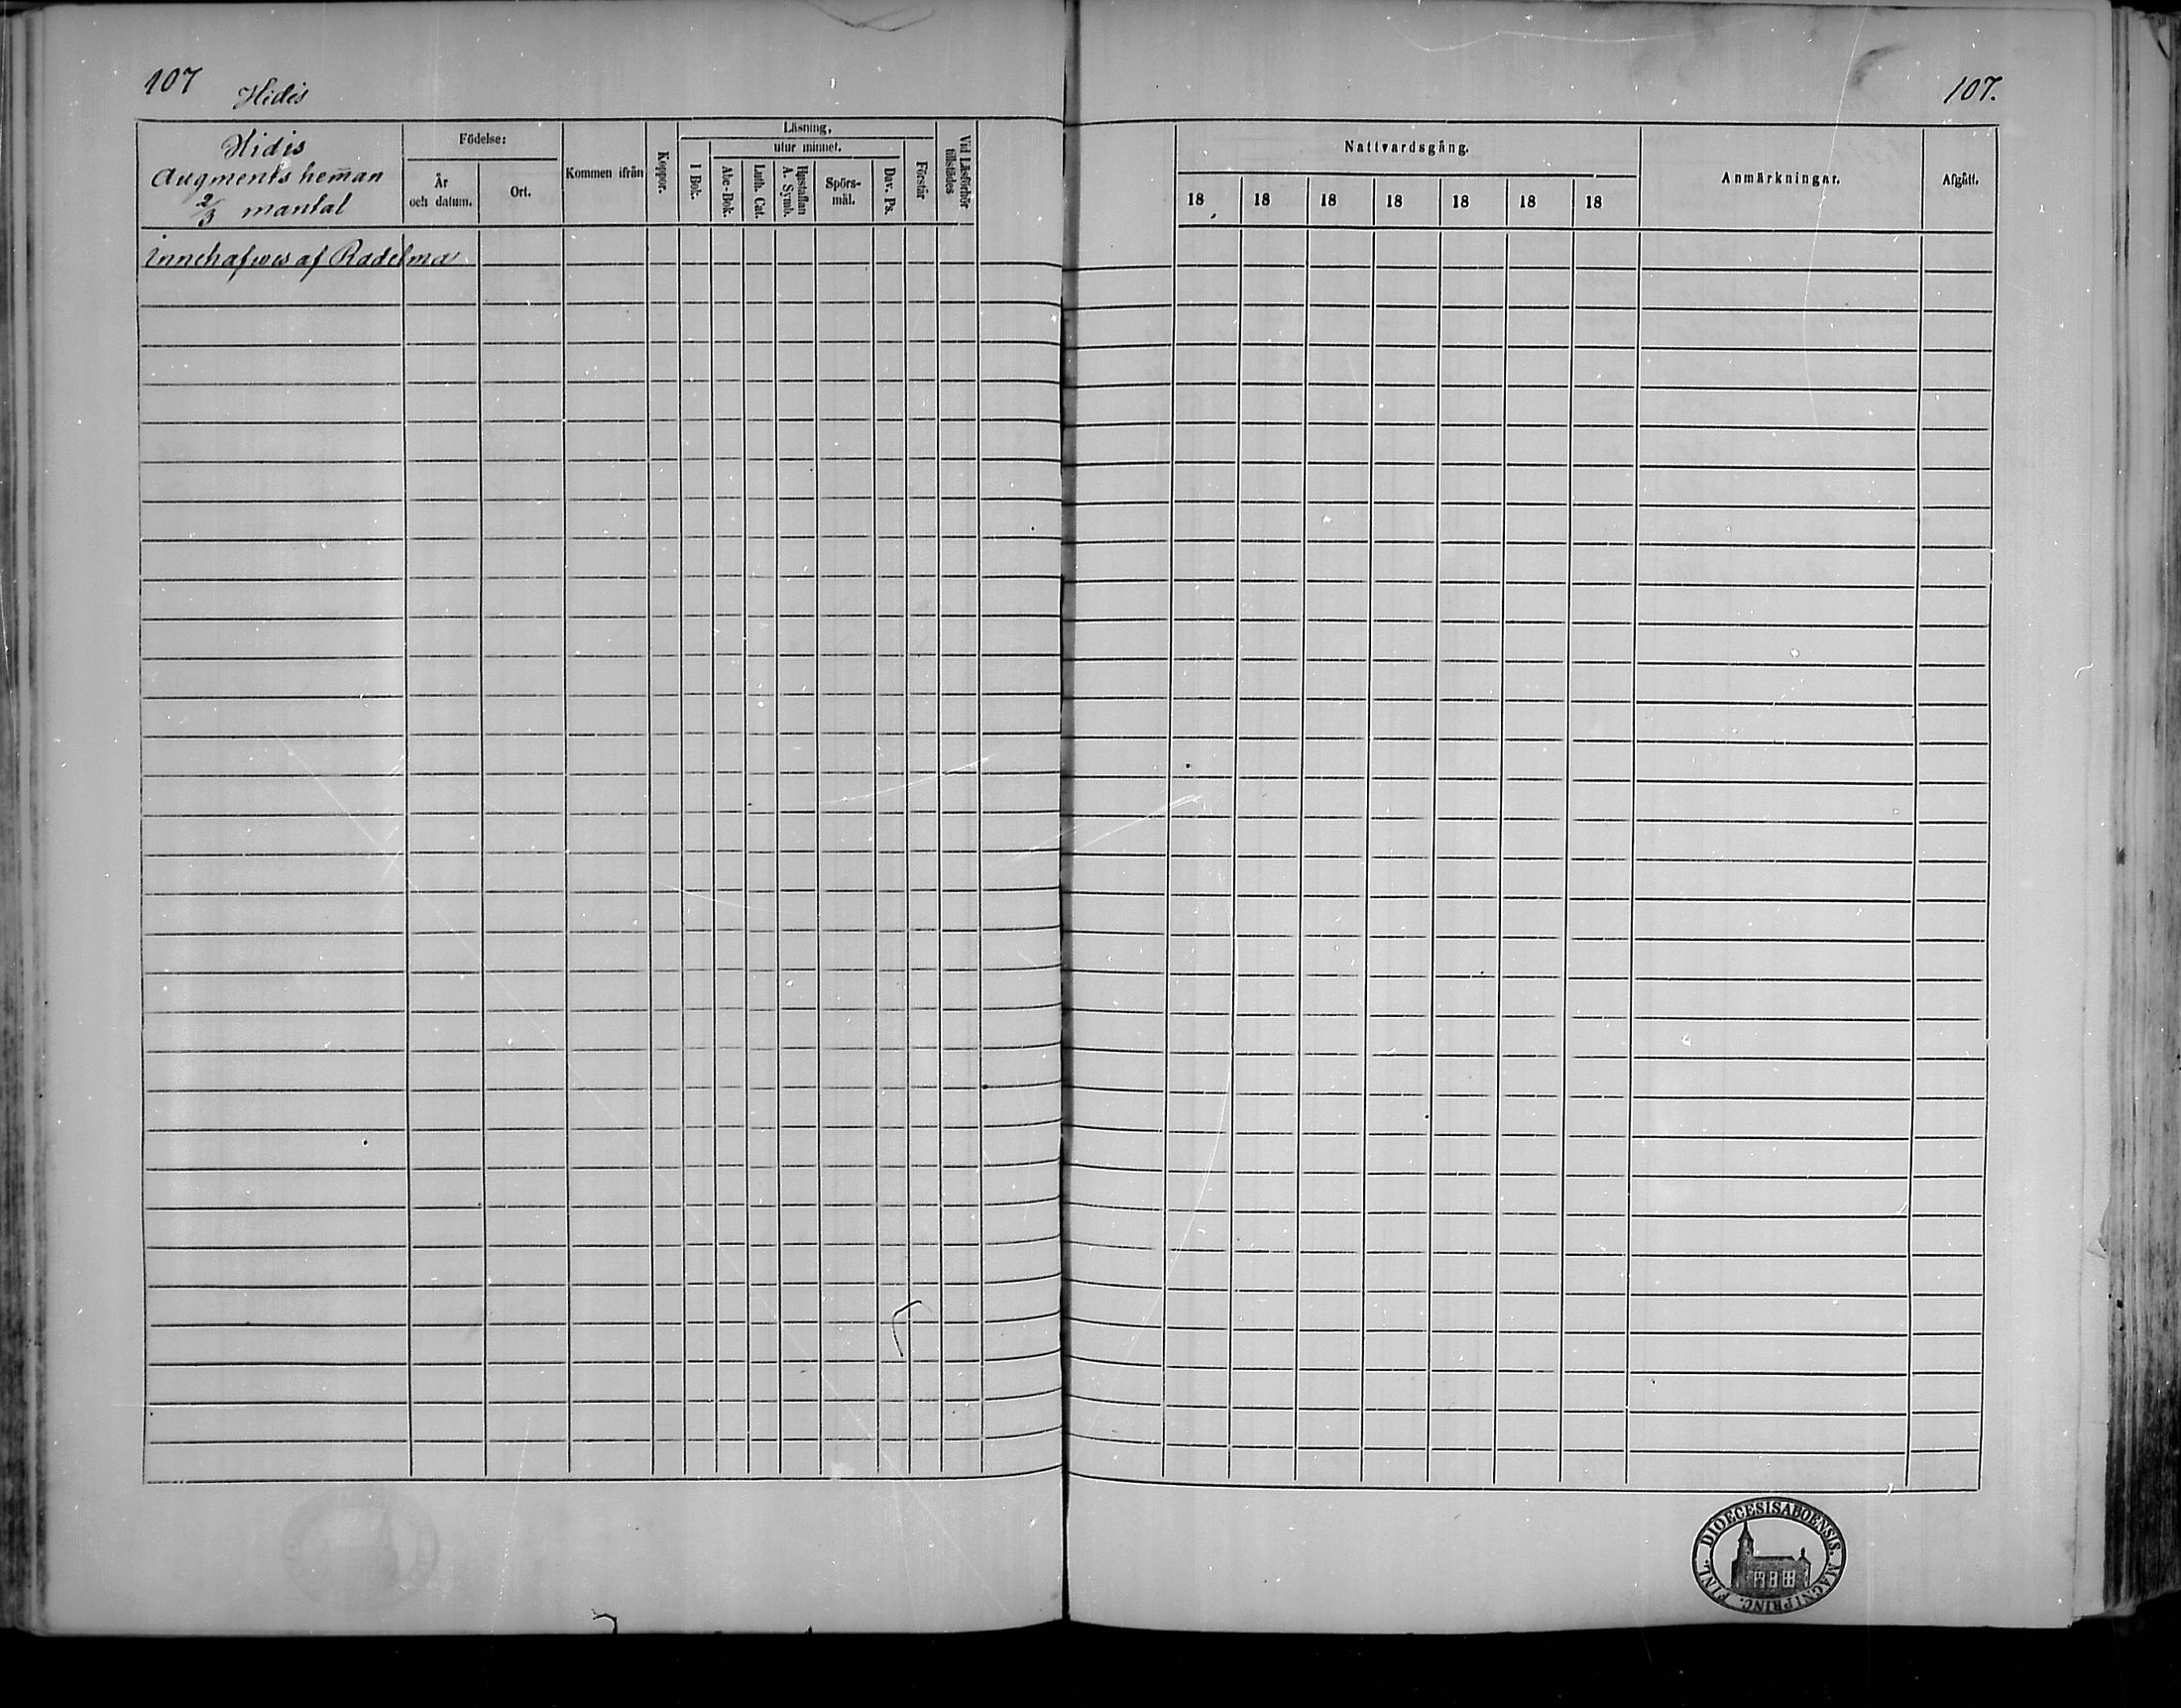 107
Hidis
Hidis
Augments hem̄an
2/3 mantal
Födelse:
År
och datum.
Ort.
Kommen ifrån
Koppor.
Läsning,
utur minnet.
I Bok.
Abc-Bok.
Luth. Cat.
Hustaflan
A. Symb.
Spörs-
mål.
Dav. Ps.
Förstår
Vid Läsförhör
tillstädes
innehafwes af Radelma
107.
Nattvardsgång.
18 18 18 18 18 18 18
Anmärkningar.
Afgått.
FINL. DIOECESIS ABOENSIS. MAGNI PRINC.